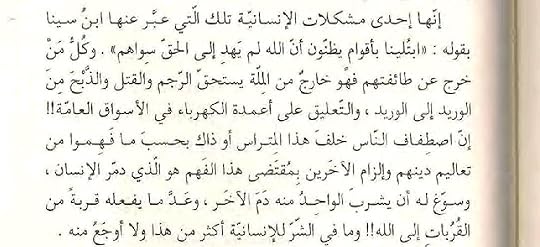 إنّها إحدى مشكلات الإنسانيّة تلك الّتي عبَّر عنها ابنُ سينا
بقوله : «ابتُلينا بأقوام يظنّون أنّ الله لم يَهدِ إلى الحقّ سِواهم» . وكلُّ مَنْ
خرج عن طائفتهم فهْو خارجٌ من المِلّة يستحقّ الرّجم والقتل والذَّبْحَ مِنَ
الوريد إلى الوريد ، والتّعليق على أعمدة الكهرباء في الأسواق العامّة!!
إنّ اصطِفاف النّاس خلفَ هذا المِتراس أو ذاك بحسبَ ما فَهِموا من
تعاليم دينهم وإلزام الآخَرين بِمُقتَضى هذا الفَهم هو الّذي دمّر الإنسان ،
وسوّغ له أن يشربَ الواحِدُ منه دَمَ الآخَر ، وعَدَّ ما يفعله قربةً من
القُرُبات إلى الله!! وما في الشّرّ للإنسانيّة أكثر من هذا ولا أوجَعُ منه .